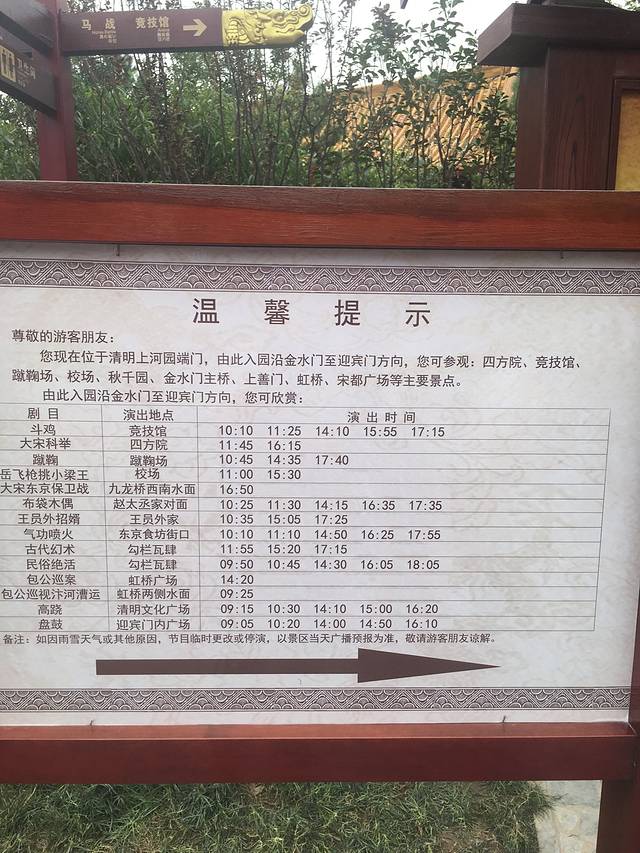 马 战 竞技馆
卫生间
温馨提示
尊敬的游客朋友：
您现在位于清明上河园端门，由此入园沿金水门至迎宾门方向，您可参观：四方院、竞技馆、
蹴鞠场、校场、秋千园、金水门主桥、上善门、虹桥、宋都广场等主要景点。
由此入园沿金水门至迎宾门方向，您可欣赏：
剧 目 演出地点 演 出 时 间
斗鸡 竞技馆 10:10 11:25 14:10 15:55 17:15
大宋科举 四方院 11:45 16:15
蹴鞠 蹴鞠场 10:45 14:35 17:40
岳飞枪挑小梁王 校场 11:00 15:30
大宋东京保卫战 九龙桥西南水面 16:50
布袋木偶 赵太丞家对面 10:25 11:30 14:15 16:35 17:35
王员外招婿 王员外家 10:35 15:05 17:25
气功喷火 东京食坊街口 10:10 11:10 14:50 16:25 17:55
古代幻术 勾栏瓦肆 11:55 15:20 17:15
民俗绝活 勾栏瓦肆 09:50 10:45 14:30 16:05 18:05
包公巡案 虹桥广场 14:20
包公巡视汴河漕运 虹桥两侧水面 09:25
高跷 清明文化广场 09:15 10:30 14:10 15:00 16:20
盘鼓 迎宾门内广场 09:05 10:20 14:00 14:50 16:10
备注：如因雨雪天气或其他原因，节目临时更改或停演，以景区当天广播预报为准，敬请游客朋友谅解。